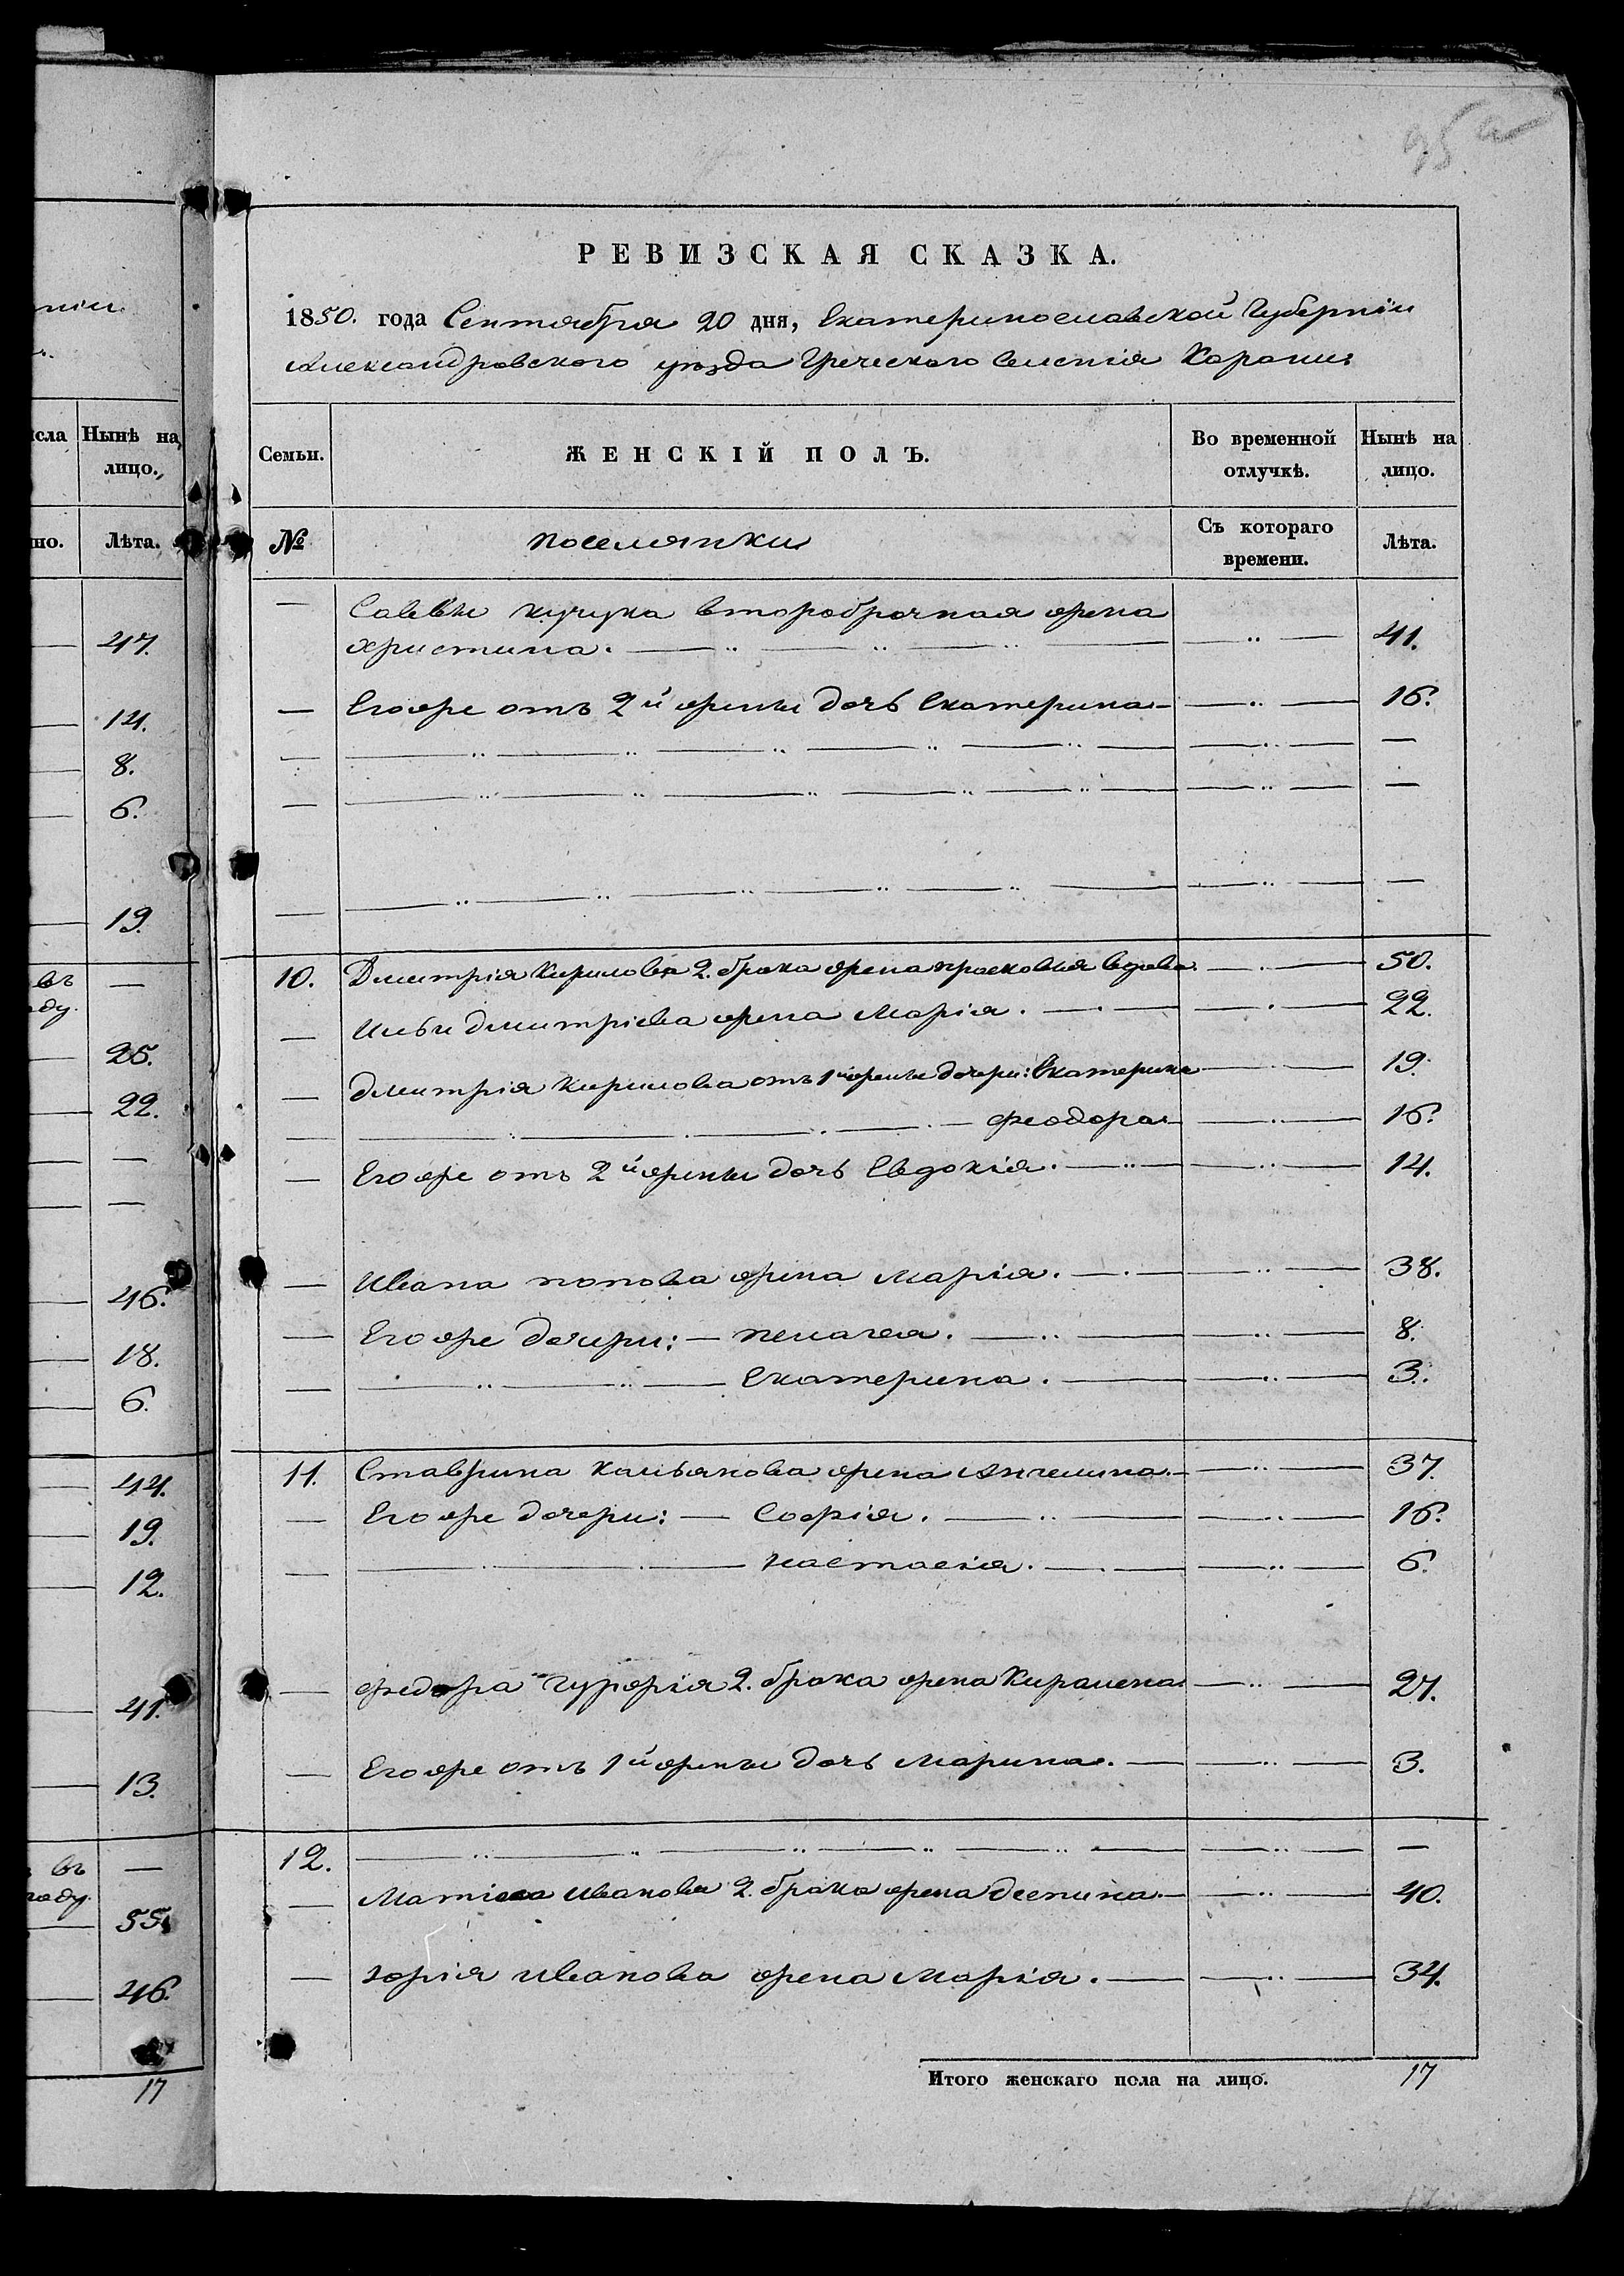 95 а
РЕВИЗСКАЯ СКАЗКА.
1850. года Сентября 20 дня, Екатеринославской Губерніи
Александровского уѣзда Греческаго Селенія Карани
Семьи.
ЖЕНСКІЙ ПОЛЪ.
Во временной отлучкѣ.
Нынѣ на лицо.
№
поселянки
Съ котораго времени.
Лѣта.
— Саввы кучука второбрачная жена
христина. — 41.
— Его же отъ 2й жены дочь Екатерина — 16.
10. Дмитрія Кирилова 2. брака жена прасковья вдова. — 50.
— Ильи дмитріева жена Марія. — 22.
— дмитрія кирилова отъ 1й жены дочери: Екатерина — 19.
— феодора — 16.
— Его же отъ 2й жены дочь Евдокія. — 14.
— Ивана попова жена Марія. — 38.
— Его же дочери: — пелагея. — 8.
— Екатерина. — 3.
11. Ставрина кальянова жена Ангелина. — 37.
— Его же дочери: — Софія. — 16.
— настасія. — 6.
— федора гуржія 2. брака жена Кирацена — 27.
— Его же отъ 1й жены дочь Марина. — 3.
12. —
— Иванова 2. брака жена деспина. — 40.
— юрія Иванова жена Марія. — 34.
Итого женскаго пола на лицо. 17
ніи.
сла
Нынѣ на лицо.
но.
Лѣта.
47.
14.
8.
6.
19.
въ
оду.
25.
22.
46.
18.
6.
44.
19.
12.
41.
13.
въ
году.
55.
46.
17